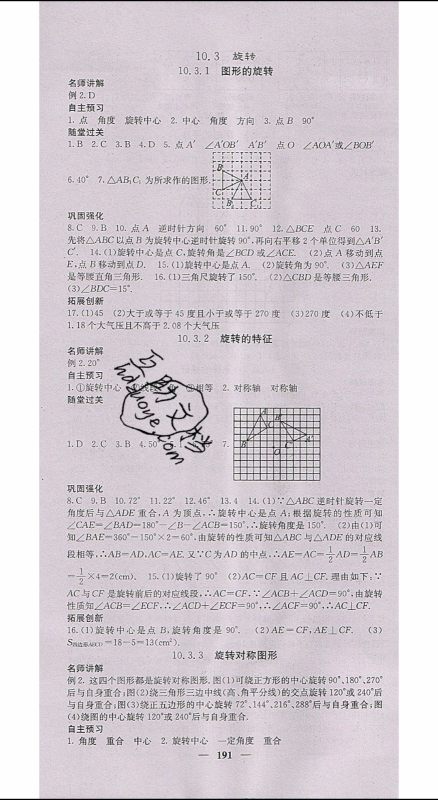 10.3 旋转
10.3.1 图形的旋转
名师讲解
例 2. D
自主预习
1. 点 角度 旋转中心 2. 中心 角度 方向 3. 点 B 90°
随堂过关
1. B 2. C 3. B 4. D 5. 点 A′ ∠A′OB′ A′B′ 点 O ∠AOA′或∠BOB′
6. 40° 7. △AB₁C₁ 为所求作的图形.
巩固强化
8. C 9. B 10. 点 A 逆时针方向 60° 11. 90° 12. △BCE 点 C 60 13.
先将△ABC 以点 B 为旋转中心逆时针旋转 90°,再向右平移 2 个单位得到△A′B′
C′. 14. (1)旋转中心是点 C,旋转角是∠BCD 或∠ACE. (2)点 A 移动到点
E,点 B 移动到点 D. 15. (1)旋转中心是点 A. (2)旋转角为 90°. (3)△AEF
是等腰直角三角形. 16. (1)三角尺旋转了 150°. (2)△CBD 是等腰三角形.
(3)∠BDC=15°.
拓展创新
17. (1)45 (2)大于或等于 45 度且小于或等于 270 度 (3)270 度 (4)不低于
1.18 个大气压且不高于 2.08 个大气压
10.3.2 旋转的特征
名师讲解
例 2. 20°
自主预习
1. ①旋转中心 ③相等 2. 对称轴 对称轴
随堂过关
1. D 2. C 3. B 4. 50° 7.
巩固强化
8. C 9. B 10. 72° 11. 22° 12. 46° 13. 4 14. (1)∵△ABC 逆时针旋转一定
角度后与△ADE 重合,A 为顶点,∴旋转中心是点 A;根据旋转的性质可知
∠CAE=∠BAD=180°-∠B-∠ACB=150°,∴旋转角度是 150°. (2)由(1)可
知∠BAE=360°-150°×2=60°,由旋转的性质可知△ABC 与△ADE 的对应线
段相等,∴AB=AD,AC=AE. 又∵C 为 AD 的中点,∴AE=AC=1/2AD=1/2AB
=1/2×4=2(cm). 15. (1)旋转了 90° (2)AC=CF 且 AC⊥CF. 理由如下:∵
AC 与 CF 是旋转前后的对应线段,∴AC=CF. ∵∠ACB+∠ACD=90°,由旋转
性质知∠ACB=∠ECF. ∴∠ACD+∠ECF=90°,∴∠ACF=90°. ∴AC⊥CF.
拓展创新
16. (1)旋转中心是点 B,旋转角度是 90°. (2)AE=CF,AE⊥CF. (3)
=18-5=13(cm²).
10.3.3 旋转对称图形
名师讲解
例 2. 这四个图形都是旋转对称图形. 图(1)可绕正方形的中心旋转 90°、180°、270°
后与自身重合;图(2)绕三角形三边中线(高、角平分线)的交点旋转 120°或 240°后
与自身重合;图(3)绕正五边形的中心旋转 72°、144°、216°、288°后与自身重合;图
(4)绕图的中心旋转 120°或 240°后与自身重合.
自主预习
1. 角度 重合 中心 2. 旋转中心 一定角度 重合
— 191 —